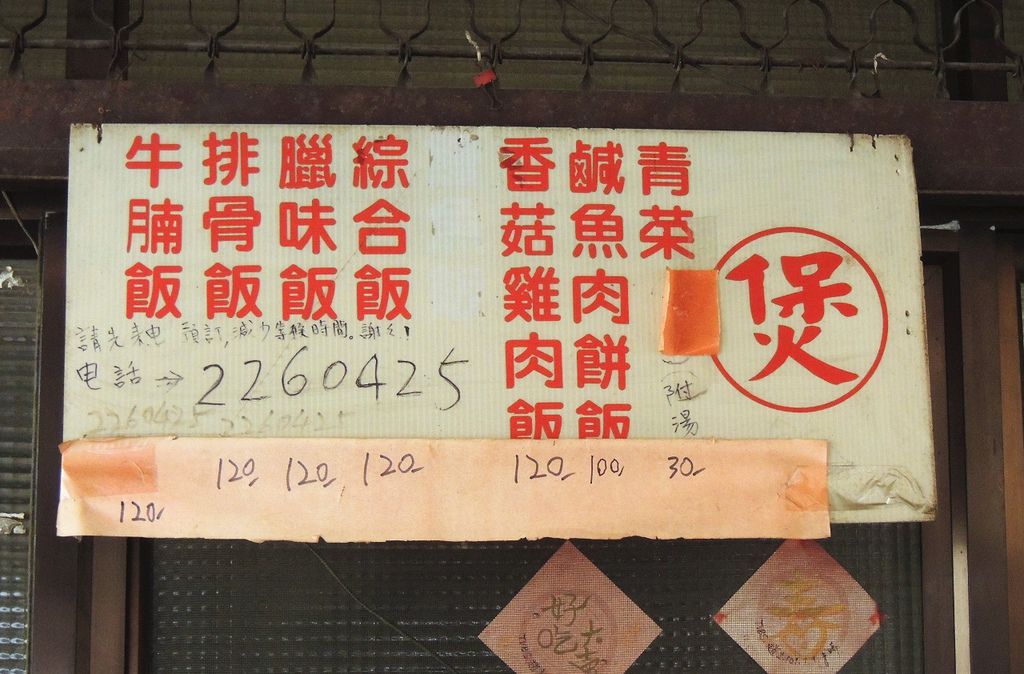 煲
青菜
鹹魚肉餅飯
香菇雞肉飯
綜合飯
臘味飯
排骨飯
牛腩飯
請先來電 預訂,減少等候時間。謝謝!
电話→2260425
2260425 2260425
附湯
120 120 120 120 100 30
120
好吃
春